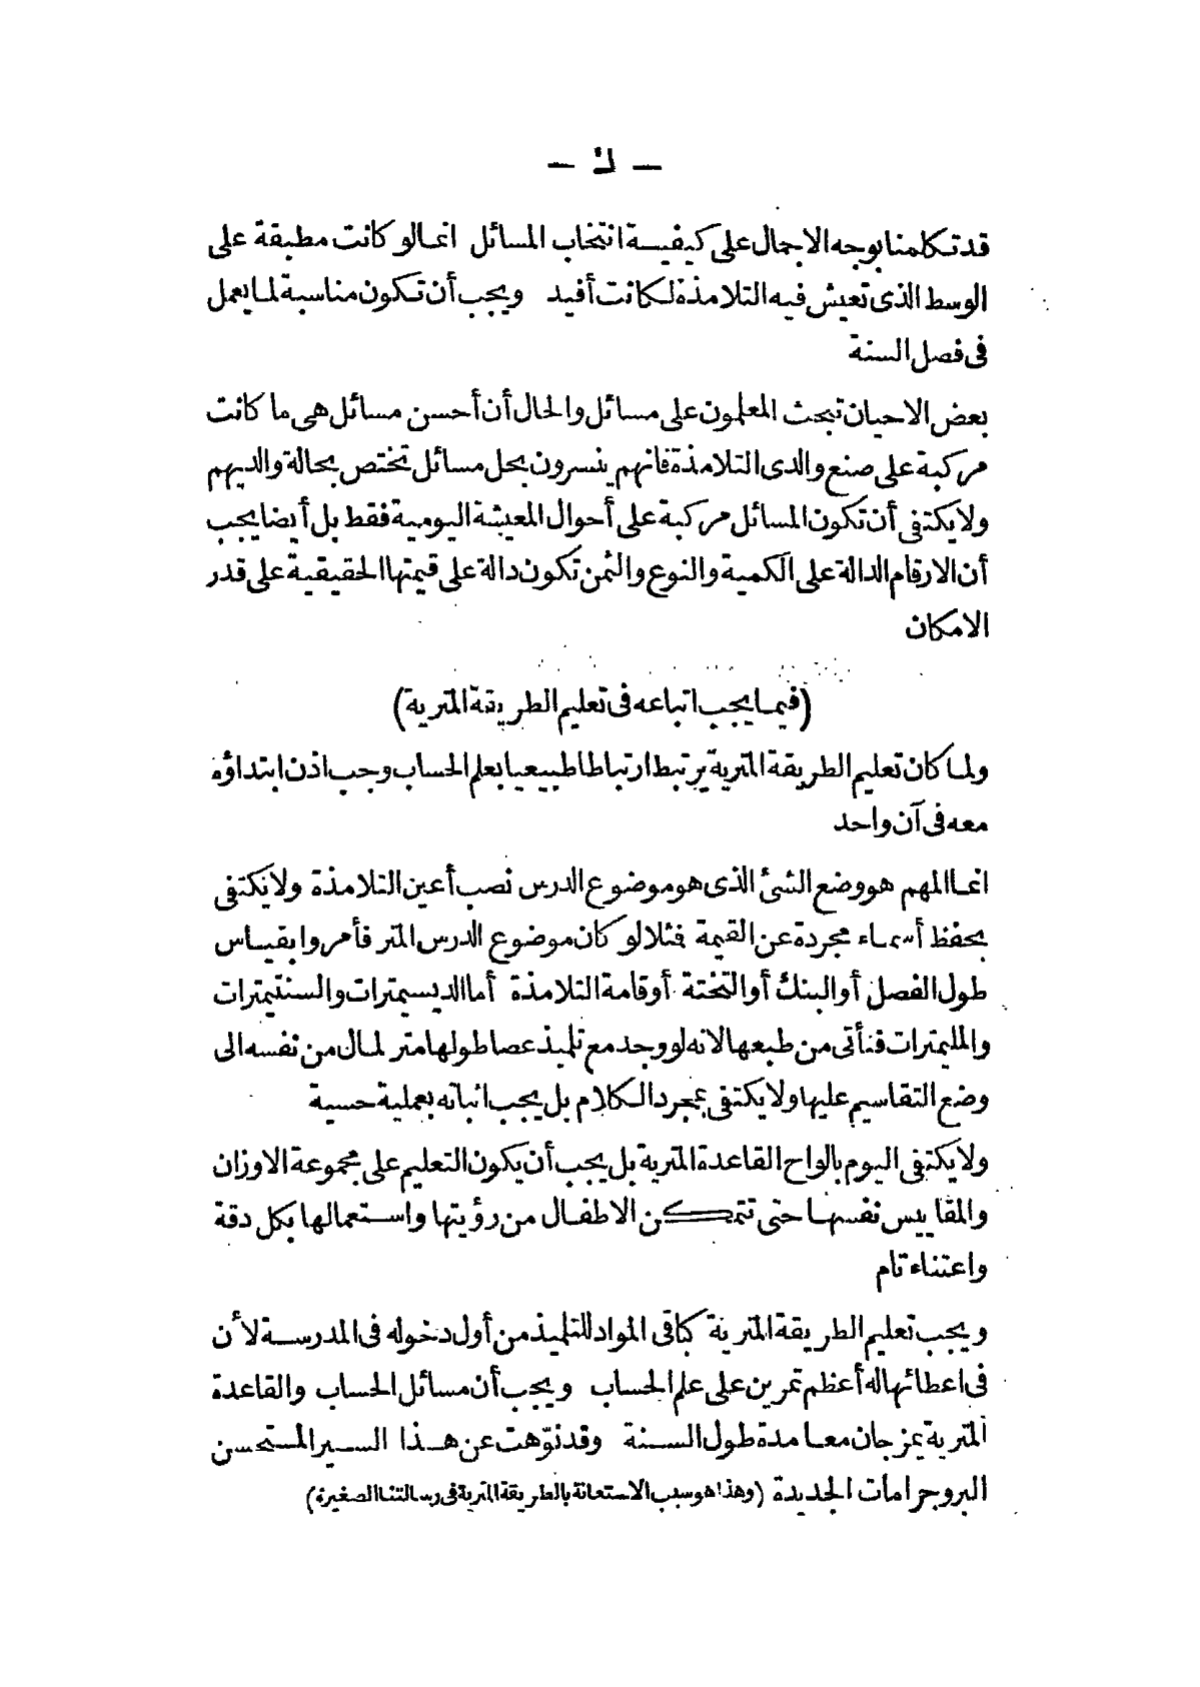 — ك —
قد تكلمنا بوجه الاجمال على كيفية انتخاب المسائل انما لو كانت مطبقة على
الوسط الذى تعيش فيه التلامذة لكانت أفيد ويجب أن تكون مناسبة لما يعمل
فى فصل السنة
بعض الاحيان تبحث المعلمون على مسائل والحال أن أحسن مسائل هى ما كانت
مركبة على صنع والدى التلامذة فانهم ينسرون بحل مسائل تختص بحالة والديهم
ولا يكتفى أن تكون المسائل مركبة على أحوال المعيشة اليومية فقط بل أيضا يجب
أن الارقام الدالة على الكمية والنوع والثمن تكون دالة على قيمتها الحقيقية على قدر
الامكان
(فيما يجب اتباعه فى تعليم الطريقة المترية)
ولما كان تعليم الطريقة المترية يرتبط ارتباطا طبيعيا بعلم الحساب وجب اذن ابتداؤه
معه فى آن واحد
انما المهم هو وضع الشئ الذى هو موضوع الدرس نصب أعين التلامذة ولا يكتفى
بحفظ أسماء مجردة عن القيمة فمثلا لو كان موضوع الدرس المتر فأمروا بقياس
طول الفصل أو البنك أو التختة أو قامة التلامذة أما الديسيمترات والسنتيمترات
والملليمترات فتأتى من طبعها لانه لو وجد مع تلميذ عصا طولها متر لمال من نفسه الى
وضع التقاسيم عليها ولا يكتفى بمجرد الكلام بل يجب اثباته بعملية حسية
ولا يكتفى اليوم بالواح القاعدة المترية بل يجب أن يكون التعليم على مجموعة الاوزان
والمقاييس نفسها حتى تتمكن الاطفال من رؤيتها واستعمالها بكل دقة
واعتناء تام
ويجب تعليم الطريقة المترية كباقى المواد للتلميذ من أول دخوله فى المدرسة لأن
فى اعطائها له أعظم تمرين على علم الحساب ويجب أن مسائل الحساب والقاعدة
المترية يمزجان معا مدة طول السنة وقد نوّهت عن هذا السير المستحسن
البروجرامات الجديدة (وهذا هو سبب الاستعانة بالطريقة المترية فى رسالتنا الصغيرة)